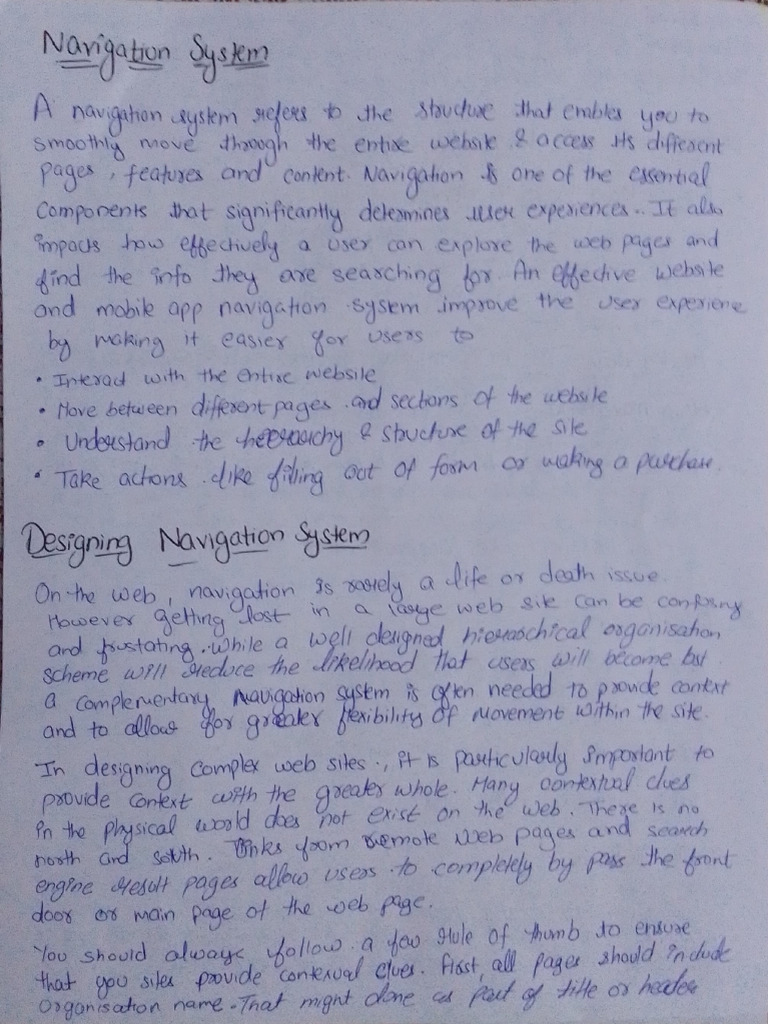 Navigation System
A navigation system refers to the structure that enables you to
smoothly move through the entire website & access its different
pages, features and content. Navigation is one of the essential
components that significantly determines user experiences. It also
impacts how effectively a user can explore the web pages and
find the info they are searching for. An effective website
and mobile app navigation system improve the user experience
by making it easier for users to
• Interact with the entire website
• Move between different pages and sections of the website
• Understand the heirarchy & structure of the site
• Take actions like filling out of form or making a purchase.
Designing Navigation System
On the web, navigation is rarely a life or death issue.
However getting lost in a large web site can be confusing
and frustating. While a well designed hierarchical organisation
scheme will reduce the likelihood that users will become lost
a complementary navigation system is often needed to provide context
and to allow for greater flexibility of movement within the site.
In designing complex web sites, it is particularly important to
provide context with the greater whole. Many contextual clues
in the physical world does not exist on the web. There is no
north and south. links from remote web pages and search
engine result pages allow users to completely by pass the front
door or main page of the web page.
You should always follow a few rule of thumb to ensure
that you sites provide contexual clues. First, all pages should include
organisation name. That might done as part of title or header